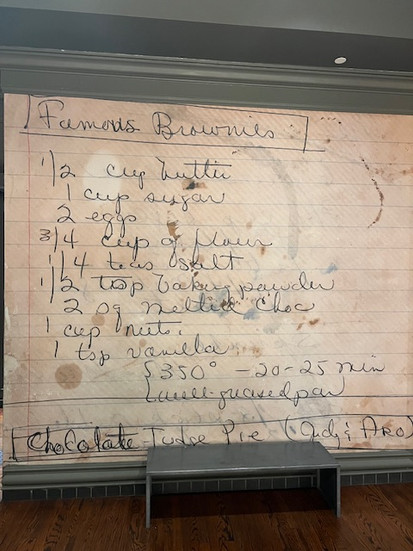 Famous Brownies:
1/2 cup butter
1 cup sugar
2 eggs
3/4 cup of flour
1/4 teas salt
1/2 tsp baking powder
2 sq melted choc
1 cup nuts.
1 tsp vanilla
350° - 20-25 min
well greased pan
Chocolate Fudge Pie (Judy &